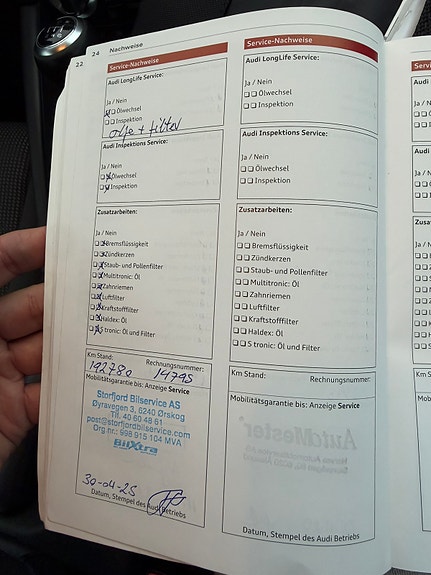 22
24 Nachweise
Service-Nachweise
Audi LongLife Service:
Ja / Nein
Ölwechsel
Inspektion
olje + filter
Audi Inspektions Service:
Ja / Nein
Ölwechsel
Inspektion
Zusatzarbeiten:
Ja / Nein
Bremsflüssigkeit
Zündkerzen
Staub- und Pollenfilter
Multitronic: Öl
Zahnriemen
Luftfilter
Kraftstofffilter
Haldex: Öl
S tronic: Öl und Filter
Km Stand: Rechnungsnummer:
192780 14795
Mobilitätsgarantie bis: Anzeige Service
Storfjord Bilservice AS
Øyravegen 3, 6240 Ørskog
Tlf. 40 60 48 61
post@storfjordbilservice.com
Org.nr.: 998 915 104 MVA
BilXtra
30-04-25
Datum, Stempel des Audi Betriebs
Service-Nachweise
Audi LongLife Service:
Ja / Nein
Ölwechsel
Inspektion
Audi Inspektions Service:
Ja / Nein
Ölwechsel
Inspektion
Zusatzarbeiten:
Ja / Nein
Bremsflüssigkeit
Zündkerzen
Staub- und Pollenfilter
Multitronic: Öl
Zahnriemen
Luftfilter
Kraftstofffilter
Haldex: Öl
S tronic: Öl und Filter
Km Stand: Rechnungsnummer:
Mobilitätsgarantie bis: Anzeige Service
AutoMester
Datum, Stempel des Audi Betriebs